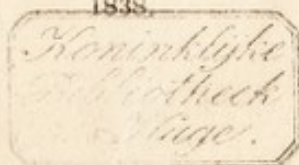 1838.
Koninklijke
Bibliotheek
Hage.